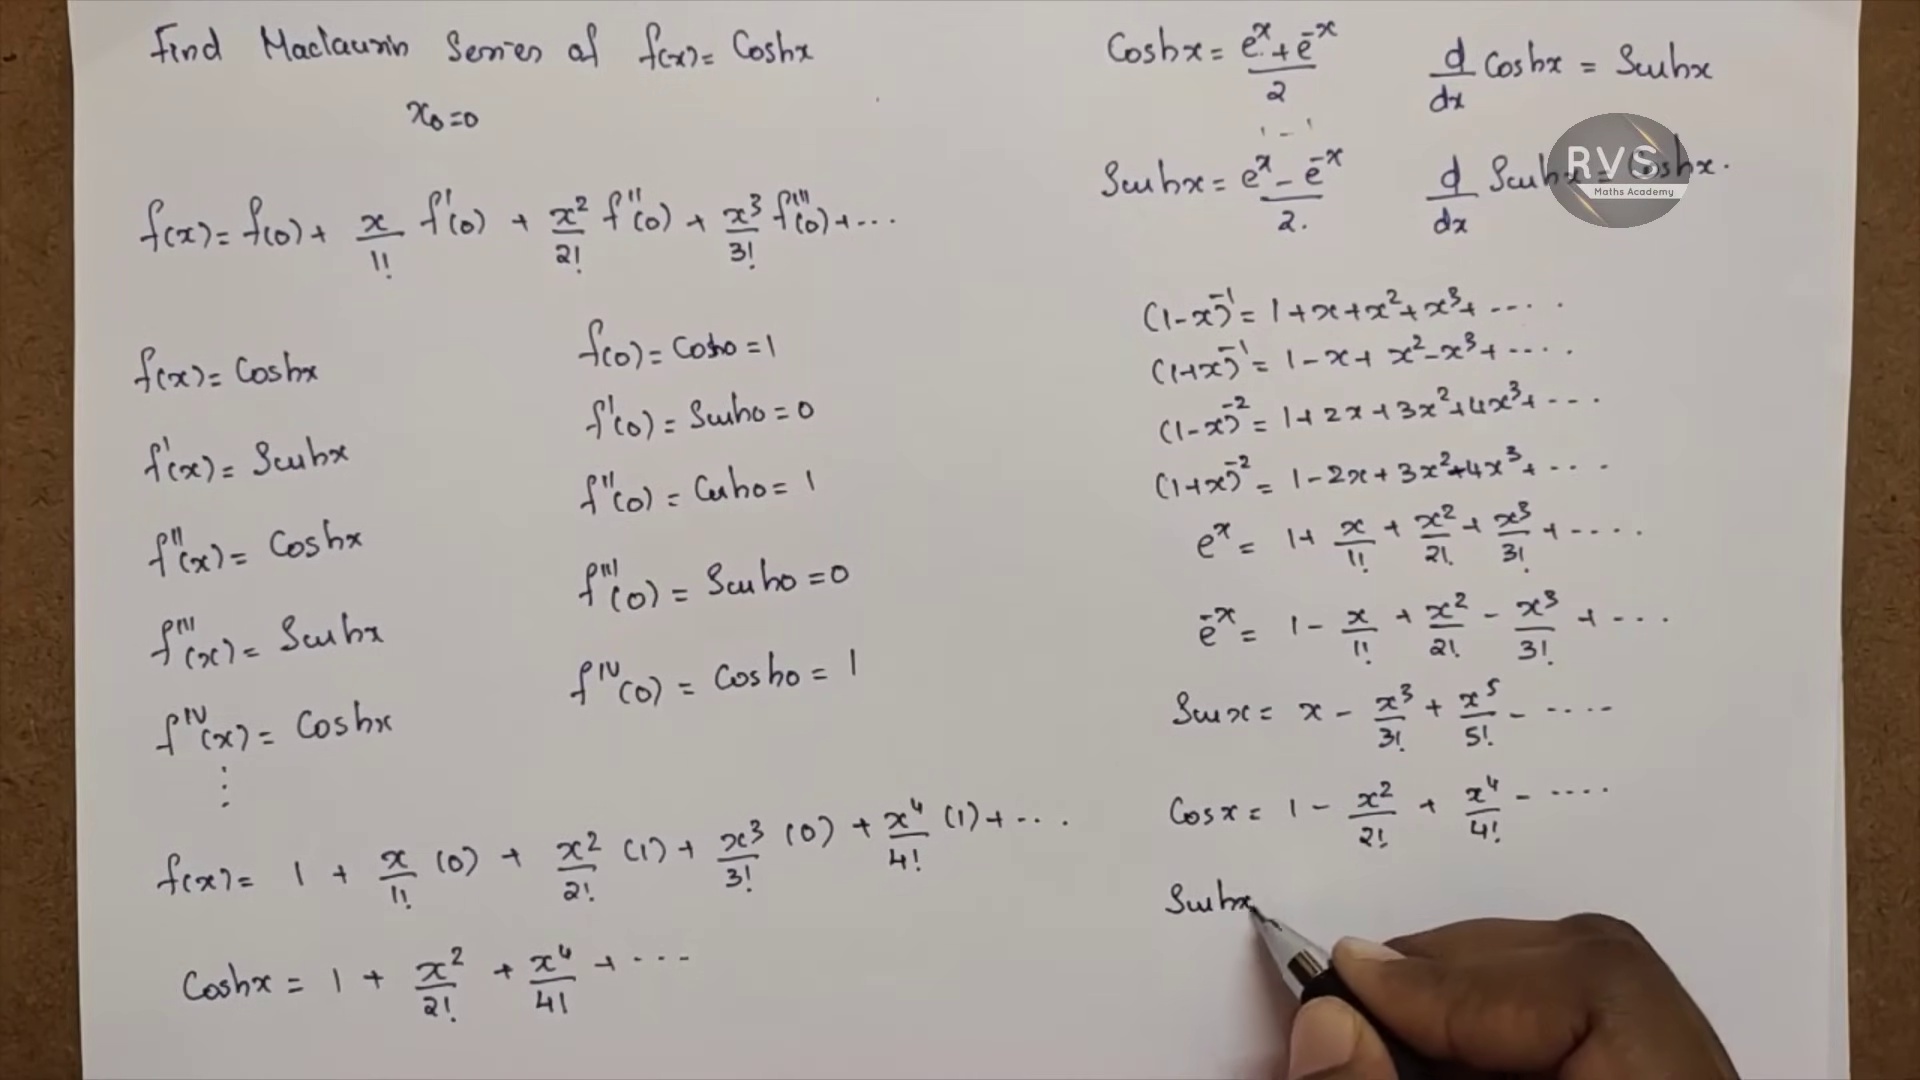 Find Maclaurin Series of f(x) = Coshx
x₀=0
f(x) = f(0) + x/1! f'(0) + x²/2! f''(0) + x³/3! f'''(0) + ...
f(x) = Coshx
f'(x) = Sinhx
f''(x) = Coshx
f'''(x) = Sinhx
f^IV(x) = Coshx
⋮
f(0) = Cosh0 = 1
f'(0) = Sinh0 = 0
f''(0) = Cosh0 = 1
f'''(0) = Sinh0 = 0
f^IV(0) = Cosh0 = 1
f(x) = 1 + x/1! (0) + x²/2! (1) + x³/3! (0) + x⁴/4! (1) + ...
Coshx = 1 + x²/2! + x⁴/4! + ...
Coshx = (e^x + e^-x)/2
d/dx Coshx = Sinhx
Sinhx = (e^x - e^-x)/2.
d/dx Sinhx = Coshx.
RVS
Maths Academy
(1-x)^-1 = 1+x+x²+x³+ ....
(1+x)^-1 = 1-x+x²-x³+ ....
(1-x)^-2 = 1+2x+3x²+4x³+ ...
(1+x)^-2 = 1-2x+3x²-4x³+ ...
e^x = 1+ x/1! + x²/2! + x³/3! + ....
e^-x = 1 - x/1! + x²/2! - x³/3! + ...
Sinx = x - x³/3! + x⁵/5! - ....
Cosx = 1 - x²/2! + x⁴/4! - ....
Sinhx